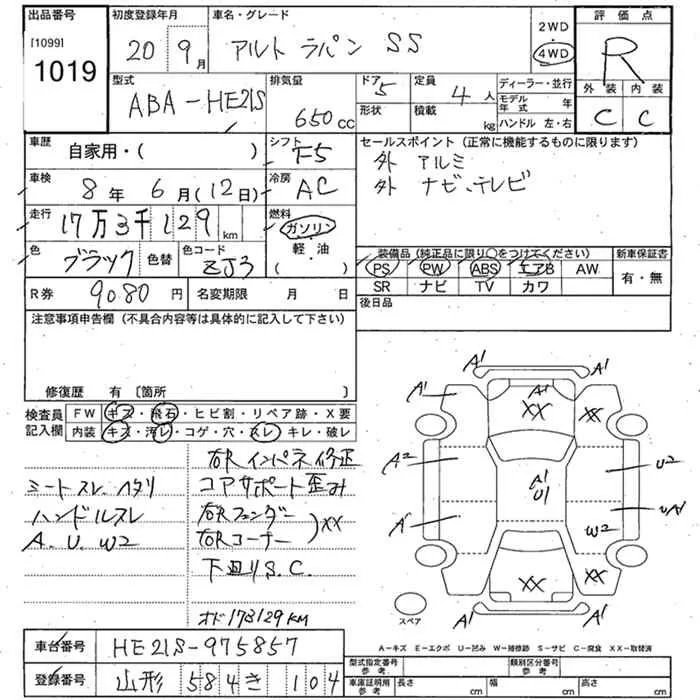 出品番号
[1099]
1019
初度登録年月
20年 9月
車名・グレード
アルト ラパン SS
2WD
4WD
評価点
R
外装 内装
C C
型式
ABA-HE21S
排気量
650cc
ドア
5
形状
定員
4人
積載
kg
ディーラー・並行
モデル年式 年
ハンドル 左・右
車歴
自家用・( )
シフト
F5
車検
8年 6月(12日)
冷房
AC
走行
17万3千129km
燃料
ガソリン
軽・油
( )
色
ブラック
色替
色コード
ZJ3
セールスポイント(正常に機能するものに限ります)
外 アルミ
外 ナビ、テレビ
装備品(純正品に限り○をつけてください)
PS PW ABS エアB AW
SR ナビ TV カワ
新車保証書
有・無
R券
9080円
名変期限 月 日
後日品
注意事項申告欄(不具合内容等は具体的に記入して下さい)
修復歴 有〔箇所 〕
検査員記入欄
FW キズ・飛石・ヒビ割・リペア跡・X要
内装 キズ・汚レ・コゲ・穴・スレ・キレ・破レ
シートスレ、ヘタリ
ハンドルスレ
A.U.W2
右Rインパネ修正
コアサポート歪み
右Rフェンダー
右Rコーナー
)XX
下廻りS.C.
オド173129KM
A1 A1
A1 A1 XX XX
A2 U2
A1 U1
A1 W2 UA1
XX XX
A1 A1
スペア
A-キズ E-エクボ U-凹み W-補修跡 S-サビ C-腐食 XX-取替済
車台番号
HE21S-975857
登録番号
山形 584 き 104
型式指定番号
参考
類別区分番号
参考
車庫証明用
参考
長さ cm
幅 cm
高さ cm